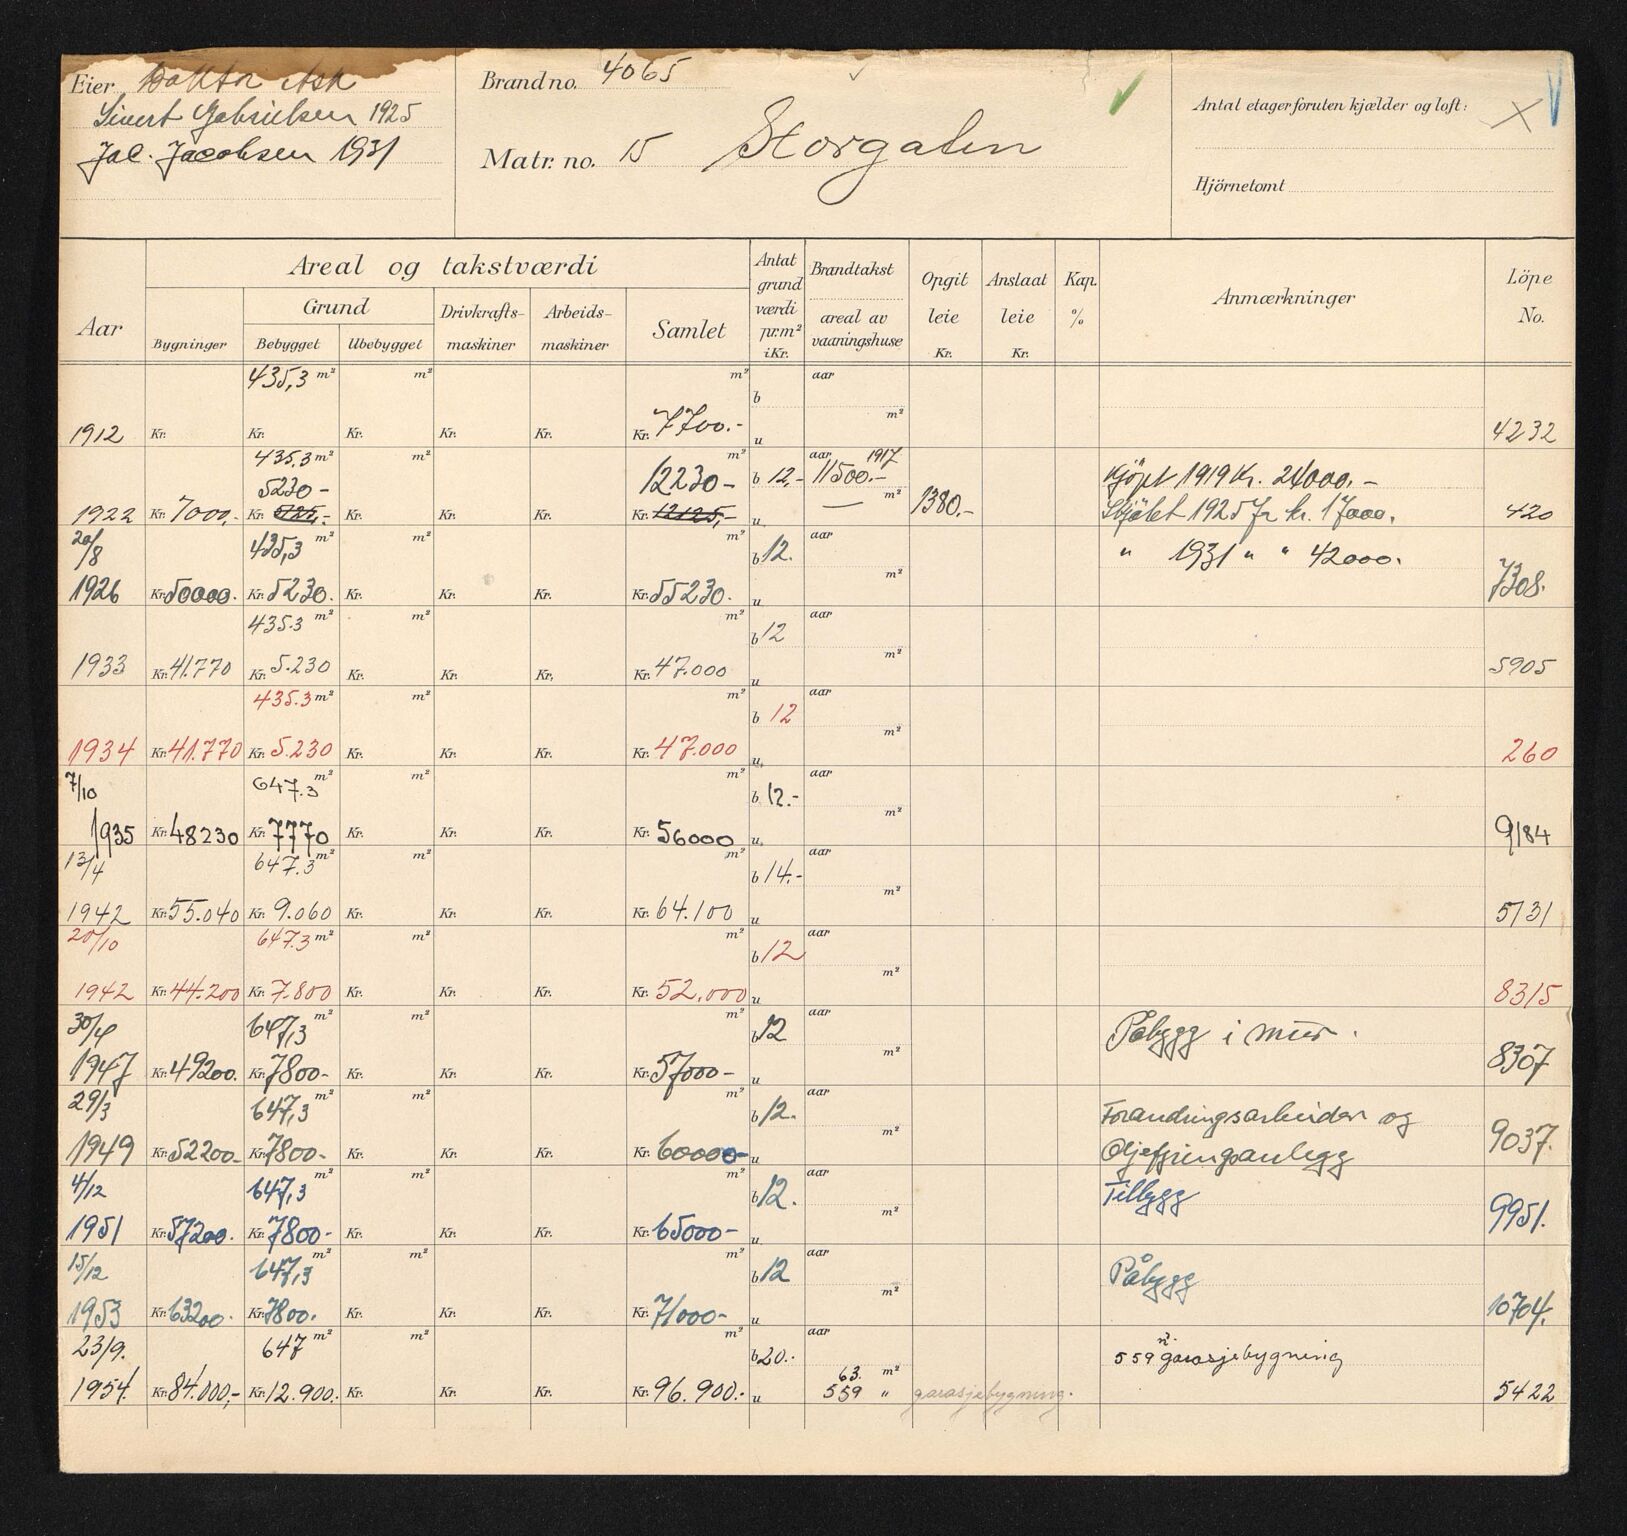 Eier Doktor Ask
Sivert Gabrielsen 1925
Jac. Jacobsen 1931
Brandno. 4065
Matr. no. 15 Storgaten
Antal etager foruten kjælder og loft:
Hjörnetomt
Aar
Areal og takstværdi
Grund
Bygninger Bebygget Ubebygget
Drivkrafts-maskiner
Arbeids-maskiner
Samlet
Antat grund værdi pr.m² i Kr.
Brandtakst
areal av vaaningshuse
Opgit leie Kr.
Anslaat leie Kr.
Kap. %
Anmærkninger
Löpe No.
435,3 m² m² m² aar
b m²
1912 Kr. Kr. Kr. Kr. Kr. Kr. 7700.- u 4232
435.3 m² m² m² aar 1917
5230- 12230- b 12,- 11500.- Kjöpt 1919 Kr. 24000.-
m²
1922 Kr. 7000,- Kr. 5125,- Kr. Kr. Kr. Kr. 12125,- u — 1380.- Skjötet 1925 for kr. 17000. 420
20/8 435,3 m² m² m² b 12. aar " 1931 " " 42000.
m²
1926 Kr. 50000. Kr. 5230. Kr. Kr. Kr. Kr. 55230. u 7308.
435.3 m² m² m² b 12 aar
m²
1933 Kr. 41.770 Kr. 5.230 Kr. Kr. Kr. Kr. 47.000 u 5905
435.3 m² m² m² b 12 aar
m²
1934 Kr. 41.770 Kr. 5.230 Kr. Kr. Kr. Kr. 47.000 u 260
7/10 647.3 m² m² m² b 12.- aar
m²
1935 Kr. 48230 Kr. 7770 Kr. Kr. Kr. Kr. 56000 u 9184
13/4 647.3 m² m² m² b 14.- aar
m²
1942 Kr. 55.040 Kr. 9.060 Kr. Kr. Kr. Kr. 64.100 u 5131
20/10 647.3 m² m² m² b 12 aar
m²
1942 Kr. 44.200 Kr. 7.800 Kr. Kr. Kr. Kr. 52.000 u 8315
30/4 647,3 m² m² m² b 12 aar Påbygg i mur.
m²
1947 Kr. 49200. Kr. 7800- Kr. Kr. Kr. Kr. 57000- u 8307
29/3 647,3 m² m² m² b 12. aar Forandringsarbeider og
m²
1949 Kr. 52200- Kr. 7800- Kr. Kr. Kr. Kr. 60000- u Oljefyringsanlegg 9037.
4/12 647,3 m² m² m² b 12. aar Tilbygg
m²
1951 Kr. 57200. Kr. 7800- Kr. Kr. Kr. Kr. 65000- u 9951.
15/12 647,3 m² m² m² b 12 aar Påbygg
m²
1953 Kr. 63200. Kr. 7800. Kr. Kr. Kr. Kr. 71000- u 10704.
23/9. 647 m² m² m² b 20.- aar 559 m². garasjebygning
63. m²
1954 Kr. 84.000,- Kr. 12.900. Kr. Kr. Kr. Kr. 96.900.- u 559 " garasjebygning. 5422